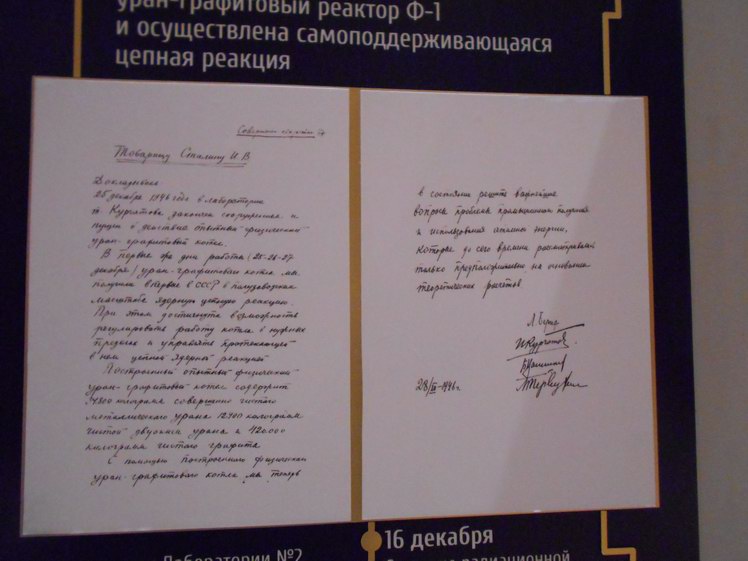 уран-графитовый реактор Ф-1
и осуществлена самоподдерживающаяся
цепная реакция
Совершенно секретно
Товарищу Сталину И.В
Докладываем:
25 декабря 1946 года в лаборатории
т Курчатова закончен сооружением и
пущен в действие опытный физический
уран-графитовый котел.
В первые же дни работы (25-26-27
декабря) уран-графитового котла мы
получили впервые в СССР в полузаводском
масштабе ядерную цепную реакцию.
При этом достигнута возможность
регулировать работу котла в нужных
пределах и управлять протекающей
в нем цепной ядерной реакцией
Построенный опытный физический
уран-графитовый котел содержит
34800 килограмм совершенно чистого
металлического урана 12900 килограмм
чистой двуокиси урана и 420.000
килограмм чистого графита
С помощью построенного физического
уран-графитового котла мы теперь
в состоянии решить важнейшие
вопросы проблемы промышленного получения
и использования атомной энергии,
которые до сего времени рассматривались
только предположительно на основании
теоретических расчетов
Л. Берия
И Курчатов
Б Ванников
М Первухин
28/XII-1946г.
16 декабря
Лаборатории №2
радиационной